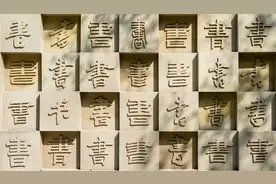 書書書書書書書
書書書書書書書
書書書書書書書
書書書書書書書